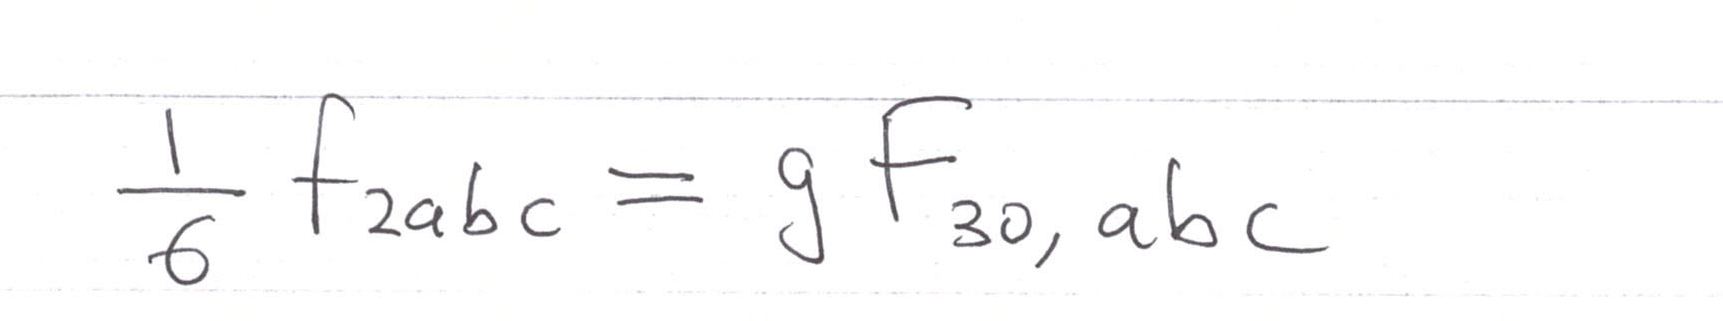 \frac{1}{6} f_{2abc} = g F_{30,abc}